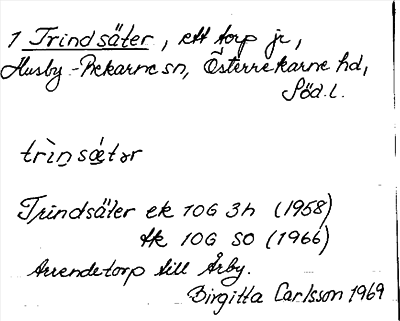 1 Trindsäter, ett torp je,
Husby-Rekarne sn, Österrekarne hd,
Söd. l.
trìn̥sǽtər
Trindsäter ek 10G 3h (1958)
tk 10G SO (1966)
Arrendetorp till Årby.
Birgitta Carlsson 1969